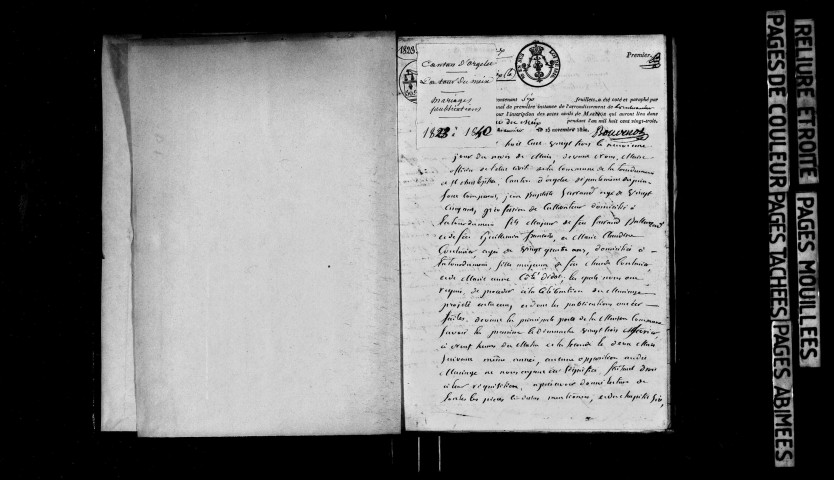 1823
Canton d'Orgelet
La tour du meix
mariages
publications
1823 à 1840
Premier
contenant six feuillets, a été coté et paraphé par
de première instance de l'arrondissement de
pour l'inscription des actes civils de Mariage qui auront lieu dans
du Meix pendant l'an mil huit cent vingt-trois.
13 novembre 1822. Bouvenot
huit cent vingt trois le neuvième
jour du mois de Mars, devant nous, Maire
officier de l'état civil de la commune de latourdumeix
Canton d'orgelet département du jura
sont comparus, jean Baptiste âgé de vingt
cinq ans, profession de Cultivateur domicilié à
latourdumeix fils majeur de feu
et de feu Guillemin et Marie Claudine
âgée de vingt quatre ans, domiciliée à
latourdumeix, fille majeure de feu claude
et de Marie anne les quels nous ont
requis de procéder à la Célébration du Mariage
projeté entr'eux, et dont les publications ont été
faites devant la principale porte de la Maison Commune
savoir la première le dimanche vingt trois février
à heures du Matin et la seconde le deux Mars
suivant même année, aucune opposition audit
Mariage ne nous ayant été signifiée, faisant droit
à leur réquisition, après avoir donné lecture de
toutes les pièces ci dessus mentionnées, et du chapitre six,
RELIURE ETROITE
PAGES MOUILLEES
PAGES DE COULEUR
PAGES TACHEES
PAGES ABIMEES